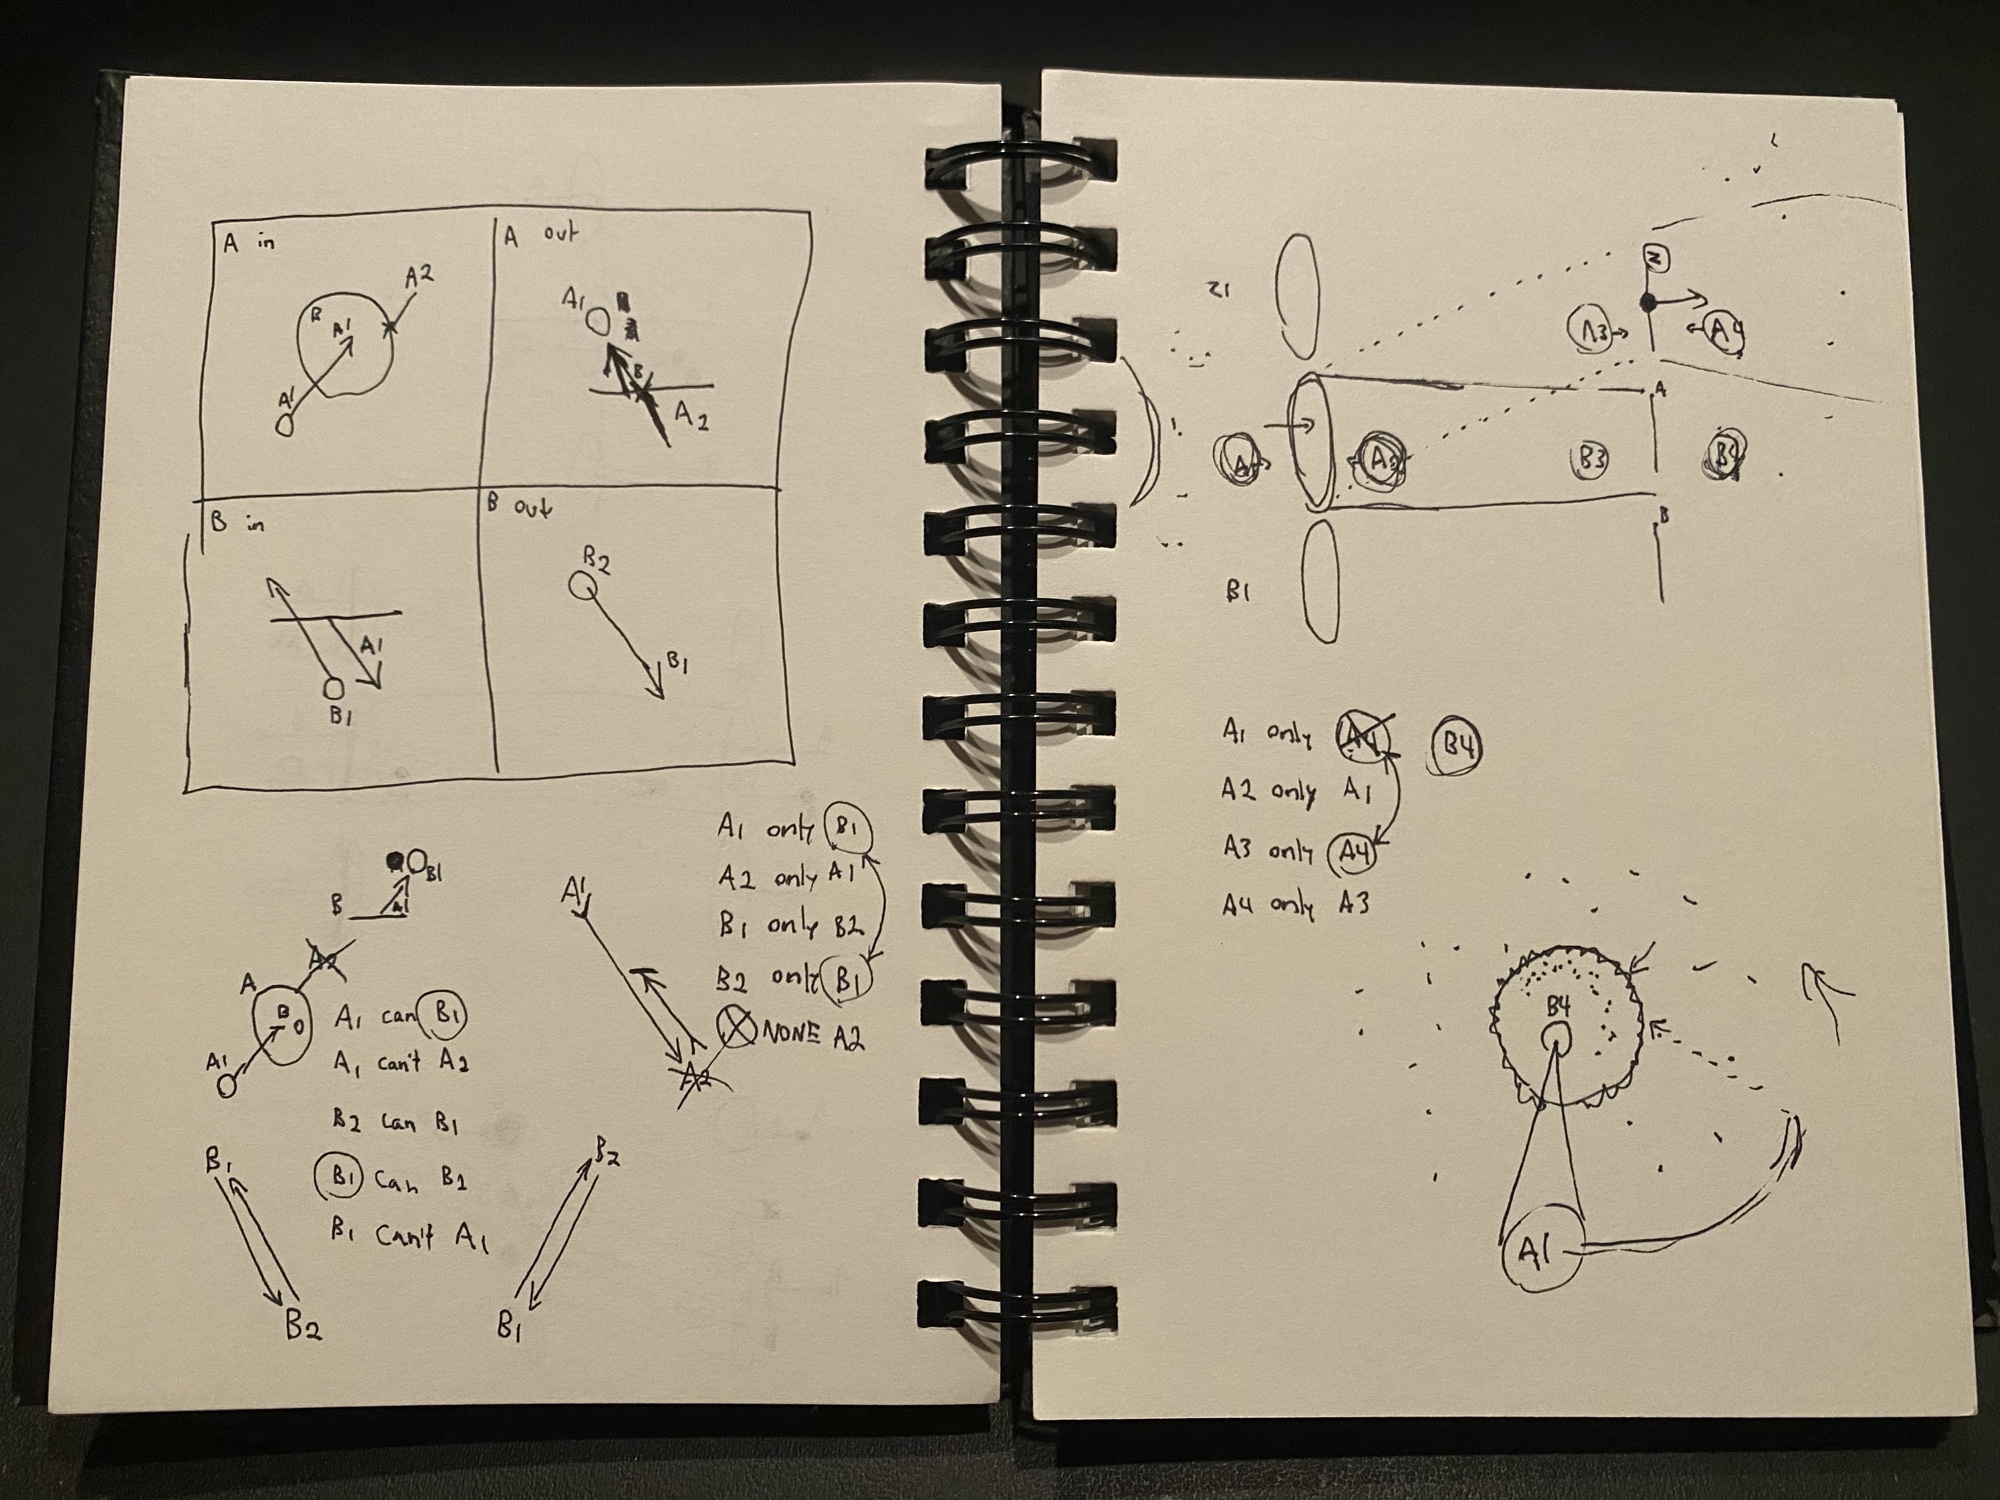 A in
A out
A2
B
A1
A1
A1
B
A2
B in
B out
B2
A1
B1
B1
B1
B
A1
A1 only B1
A2 only A1
B1 only B2
B2 only B1
NONE A2
A1
A2
A2
A
B
A1
A1 can B1
A1 can't A2
B2 can B1
B1 can B2
B1 can't A1
B1
B2
B2
B1
Z
Z1
A3
A4
A
B3
B4
B
B1
A1 only A4 B4
A2 only A1
A3 only A4
A4 only A3
B4
A1